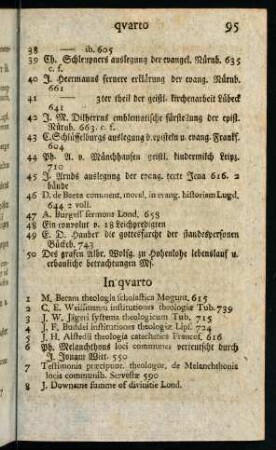 qvarto 95
38 —— ib. 605
39 Ch. Schleupners auslegung der evangel. Nürnb. 635
c. f.
40 J. Heermanns fernere erklärung der evang. Nürnb.
661
41 —— 3ter theil der geistl. kirchenarbeit Lübeck
641
42 J. M. Dilherrns emblematische fürstelung der epist.
Nürnb. 663. c. f.
43 C. Schlüsselburgs auslegung d. episteln u. evang. Frankf.
604
44 Ph. A. v. Münchhausen geistl. kindermilch Leipz.
710
45 J. Arnds auslegung der evang. texte Jena 616. 2
bände
46 D. de Baeza comment. moral. in evang. historiam Lugd.
644 2 voll.
47 A. Burgess sermons Lond. 658
48 Ein convolut v. 18 Leichpredigten
49 E. D. Hauber die gottesfurcht der standespersonen
Bückeb. 743
50 Des grafen Albr. Wolfg. zu Hohenlohe lebenslauf u.
erbauliche betrachtungen Ms.
In qvarto
1 M. Becani theologia scholastica Mogunt. 615
2 C. E. Weismanni institutiones theologiæ Tub. 739
3 J. W. Jägeri systema theologicum Tub. 715
4 J. F. Buddei institutiones theologiæ Lips. 724
5 J. H. Alstedii theologia catechetica Francof. 616
6 Ph. Melanchthons loci communes verteutscht durch
J. Jonam Witt. 550
7 Testimonia præcipuor. theologor. de Melanchthonis
locis communib. Servestæ 590
8 J. Downame summe of divinitie Lond.